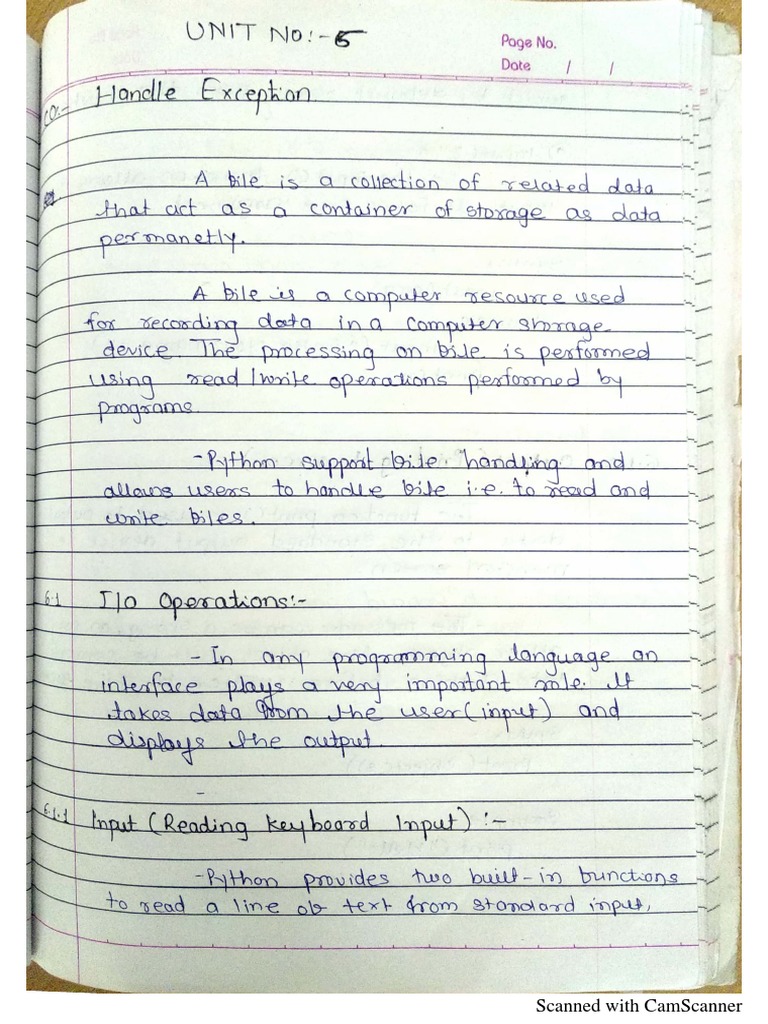 UNIT NO:- 5
Page No.
Date / /
CO:- Handle Exception.
A file is a collection of related data
that act as a container of storage as data
permanetly.
A file is a computer resource used
for recording data in a computer storage
device. The processing on file is performed
using read/write operations performed by
programs.
-Python support file handling and
allows users to handle file i.e. to read and
write files.
6.1 I/o Operations:-
- In any programming language an
interface plays a very important role. It
takes data from the user(input) and
displays the output.
-
6.1.1 Input (Reading Keyboard Input) :-
-Python provides two built-in functions
to read a line of text from standard input,
Scanned with CamScanner